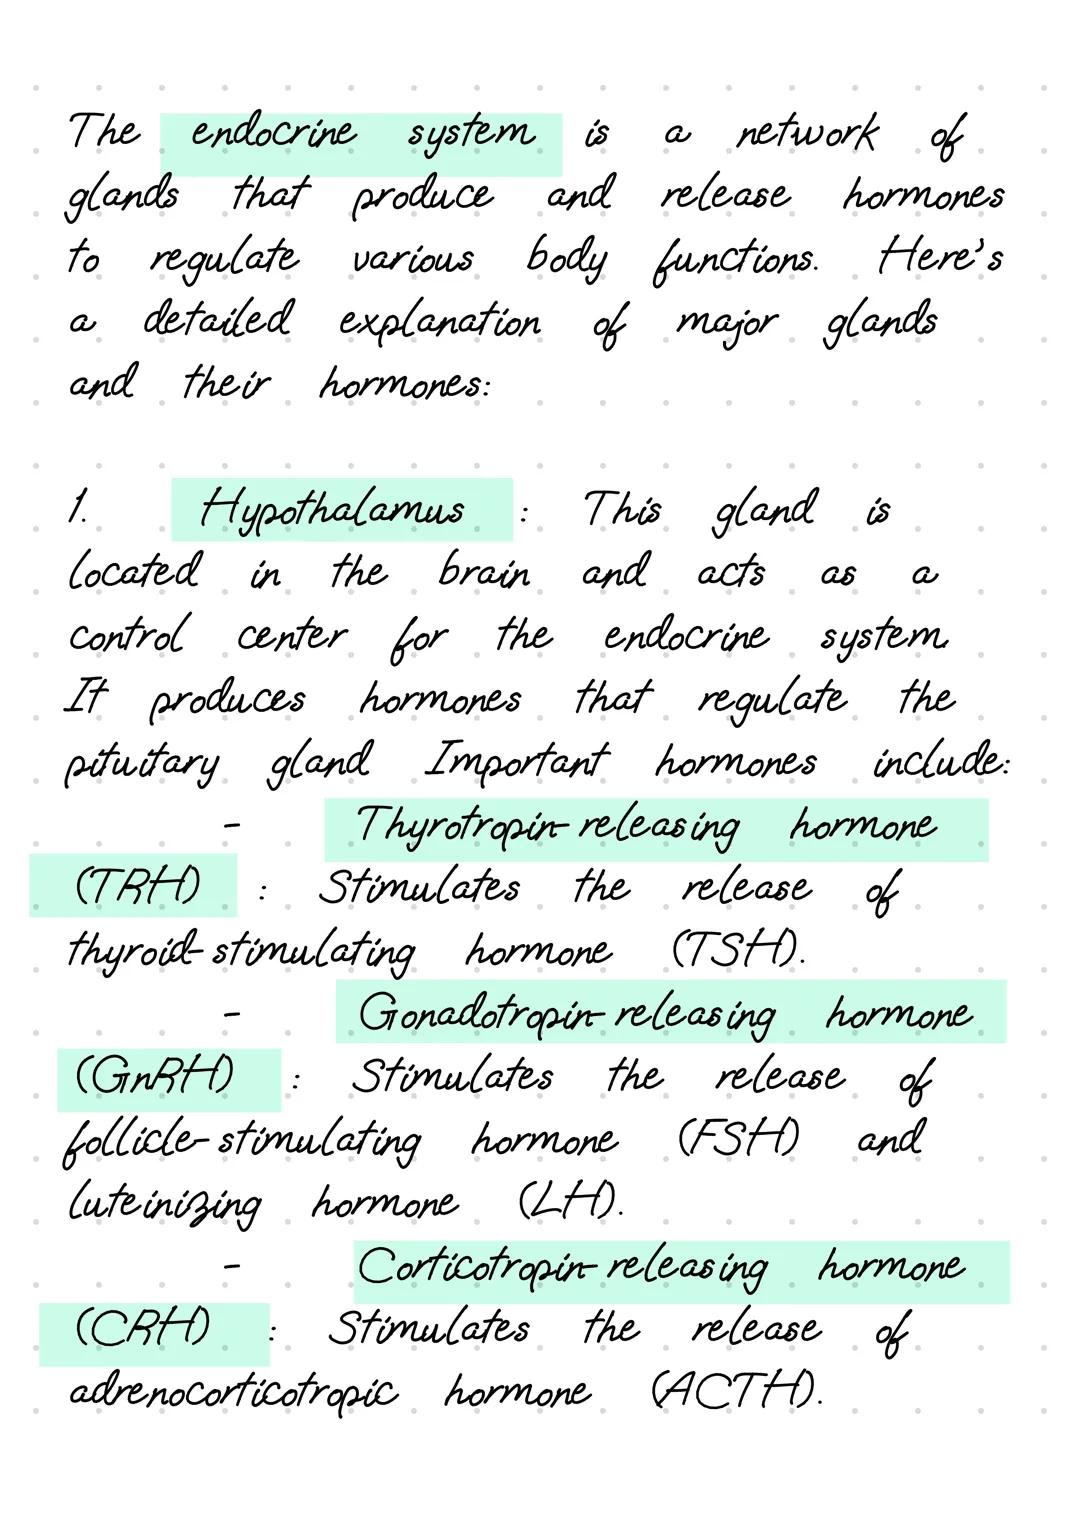 The endocrine system is a network of
glands that produce and release hormones
to regulate various body functions. Here's
a detailed explanation of major glands
and their hormones:
1. Hypothalamus : This gland is
located in the brain and acts as a
control center for the endocrine system.
It produces hormones that regulate the
pituitary gland Important hormones include:
- Thyrotropin-releasing hormone
(TRH) : Stimulates the release of
thyroid-stimulating hormone (TSH).
- Gonadotropin-releasing hormone
(GnRH) : Stimulates the release of
follicle-stimulating hormone (FSH) and
luteinizing hormone (LH).
- Corticotropin-releasing hormone
(CRH) : Stimulates the release of
adrenocorticotropic hormone (ACTH).